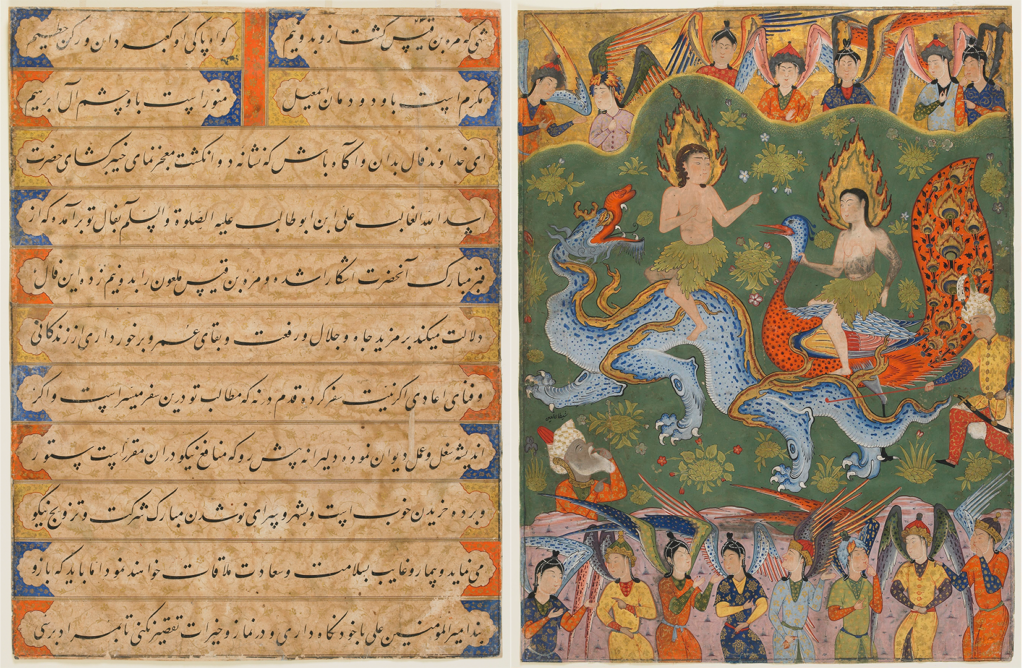 شهی که مره بن قیس گشت ازو بدو نیم گواه پاکی او کعبه دان و رکن حطیم
مکرم است باو دودمان اسمعیل منور است باو چشم آل ابرهیم
ای خداوند فال بدان و آگاه باش که نشانه دو انگشت معجزنمای خیبرگشای حضرت
اسد الله الغالب علی ابن ابوطالب علیه الصلوة والسلم بفال تو برآمد و که از
قبر مبارک آنحضرت آشکارا شد و مره بن قیس ملعون را بدو نیم زد و این فال
دلالت میکند بر مزید جاه و جلال و رفعت و بقای عمر و برخورداری از زندکانی
و فنای اعادی اگر نیت سفر کرده قدم در نه که مطالب تو درین سفر میسر است و اگر
اندیشه شغل و عمل دیوان نموده دلیرانه پیش رو که منافع نیکو دران مقرر است و ستور
و برده خریدن خوب است و شدن مبارک شرکت و تزویج نیکو
می نماید و بیمار و غایب بسلامت و سعادت ملاقات خواهند نمود اما باید که بازو
بند امیرالمومنین علی با خود نگاه داری و در نماز و خیرات تقصیر نکنی تا بمراد برسی